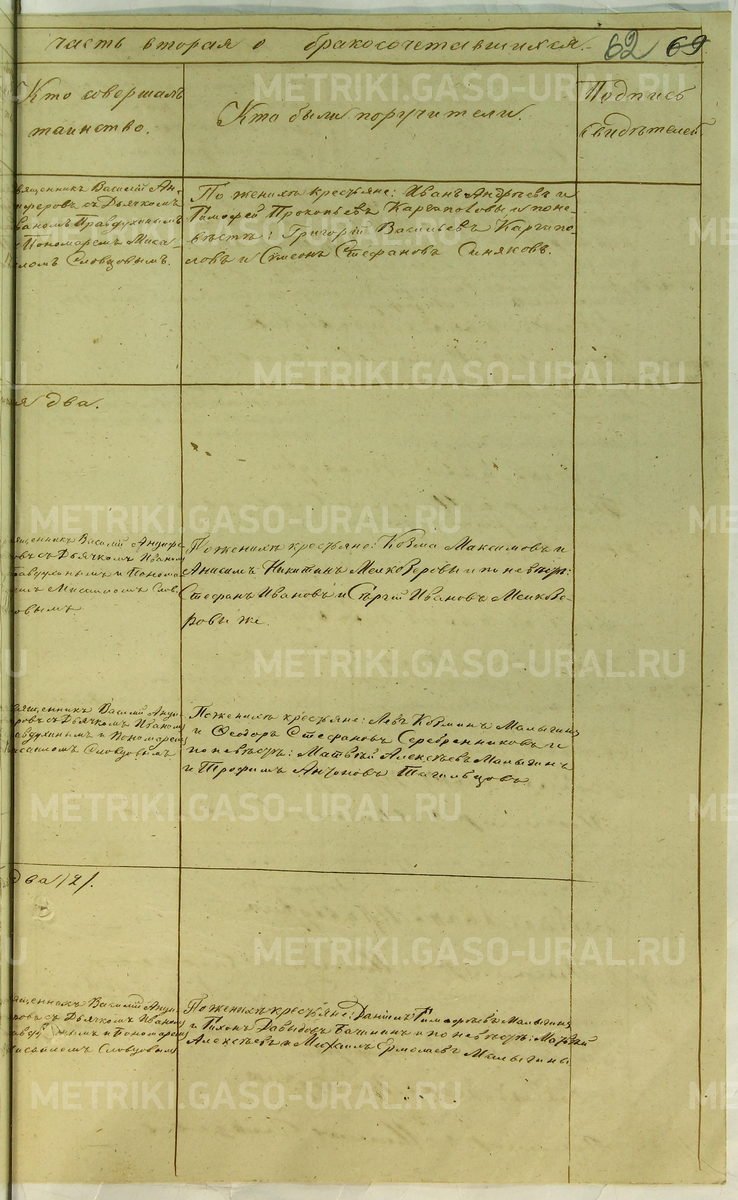 часть вторая о бракосочетавшихся.
62 69
Кто совершалъ
таинство.
Кто были поручители.
Подпись
свидѣтелей
священникъ Василій Ан-
циферовъ съ Дьячкомъ
Иваномъ Правдухинымъ
и Пономаремъ Миса
иломъ Словцовымъ.
По женихѣ крестьяне: Иванъ Андреевъ и
Тимофей Прокопьевъ Каргаполовы и по не-
вѣстѣ: Григорій Васильевъ Каргапо-
ловъ и Сѵмеонъ Стефановъ Синяковъ.
два.
священникъ Василій Анцифе
ровъ съ Дьячкомъ Иваномъ
Правдухинымъ и Понома
ремъ Мисаиломъ Слов
цовымъ
По женихѣ крестьяне: Козма Максимовъ и
Анисимъ Никитинъ Мелкозеровы и по невѣстѣ:
Стефанъ Ивановъ и Сергій Ивановъ Мелкозе-
ровы же.
священникъ Василій Анци
феровъ съ Дьячкомъ Иваномъ
Правдухинымъ и Пономаремъ
Мисаиломъ Словцовымъ
По женихѣ крестьяне: Левъ Козминъ Малыгинъ
и Ѳеодоръ Стефановъ Серебренниковъ и
по невѣстѣ: Матвѣй Алексѣевъ Малыгинъ
и Трофимъ Антоновъ Тагильцовъ
два /2/.
священникъ Василій Анци
феровъ съ Дьячкомъ Иваномъ
Правдухинымъ и Пономаремъ
Мисаиломъ Словцовымъ
По женихѣ крестьяне: Даніилъ Тимофеевъ Малыгинъ
и Тихонъ Давыдовъ и по невѣстѣ: Матвѣй
Алексѣевъ и Михаилъ Ермолаевъ Малыгины
METRIKI.GASO-URAL.RU